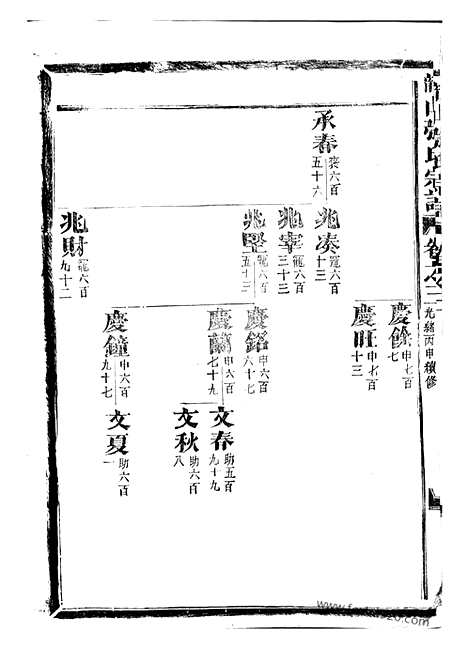 張氏宗譜
光緒丙申續修
承春
六百
五十六
兆湊
寵六百
十三
兆宰
寵六百
三十三
兆堅
寵六百
五十三
兆財
寵六百
九十二
慶餘
申七百
七
慶旺
申七百
十三
慶銘
申六百
八十七
慶蘭
申六百
七十九
慶鐘
申六百
九十七
文春
助五百
九十九
文秋
助六百
八
文夏
助六百
一